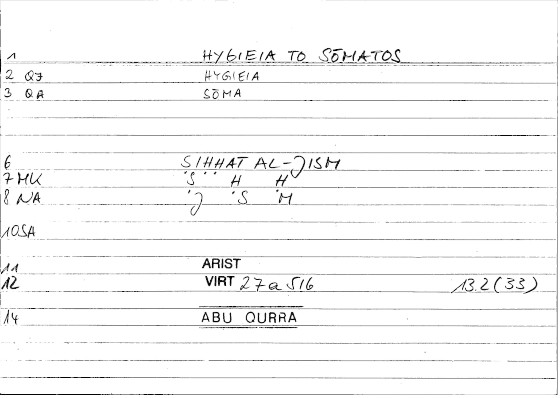 1 HYGIEIA TO SŌMATOS
2 QJ HYGIEIA
3 QA SŌMA
6 SIHHAT AL-JISM
7 MK S H H
8 NA J S M
10 SA
11 ARIST
12 VIRT 27a516 13.2 (33)
14 ABU QURRA